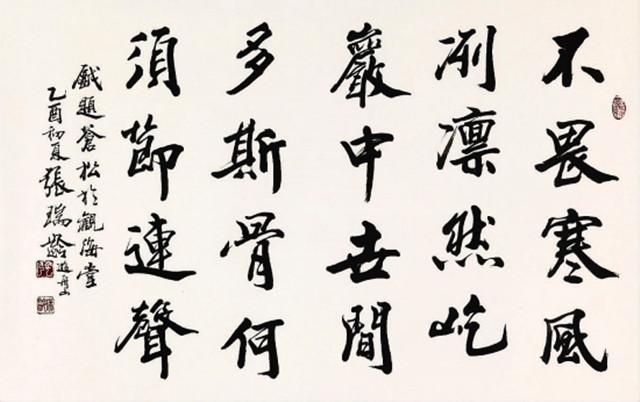 不畏寒風
冽凛然屹
巖中世間
多斯骨何
須節連聲
戲題蒼松於觀海堂
乙酉初夏張瑞齡